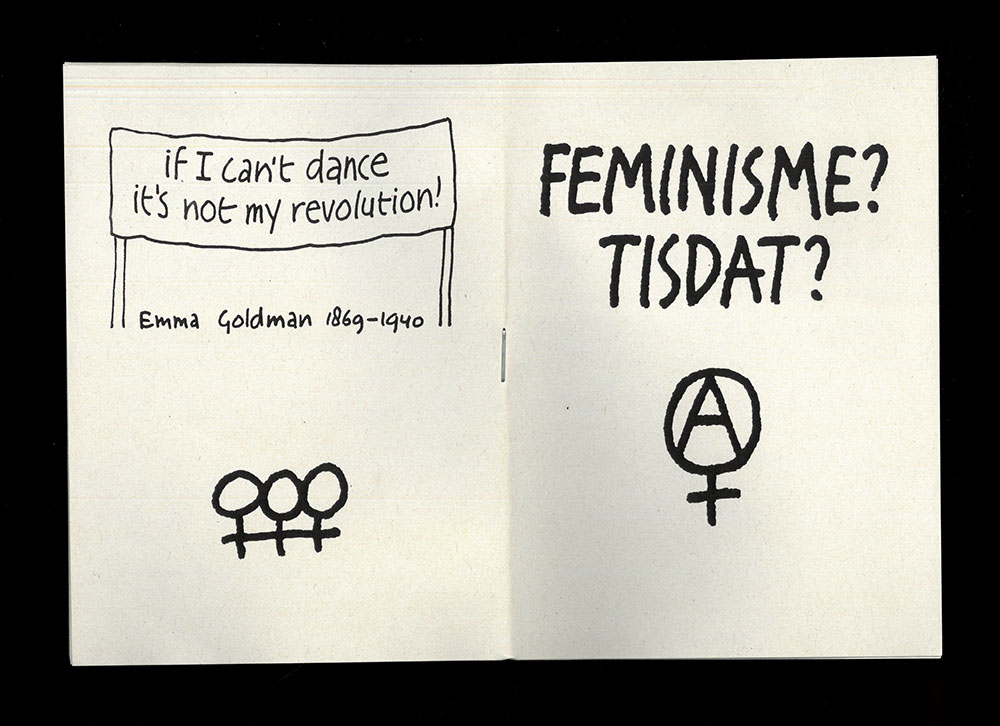 if I can't dance
it's not my revolution!
Emma Goldman 1869-1940
FEMINISME?
TISDAT?
A